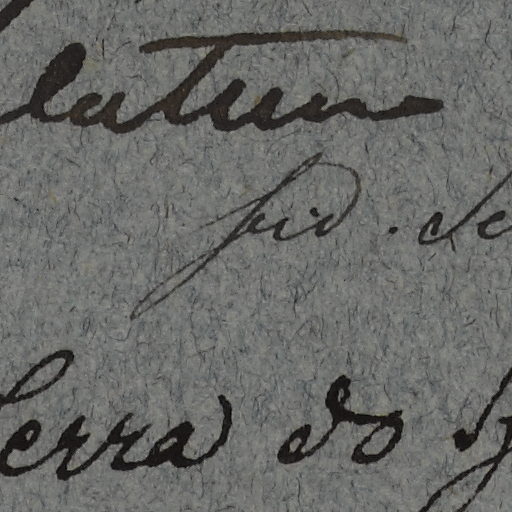 latum
fid. Sc
Serra do